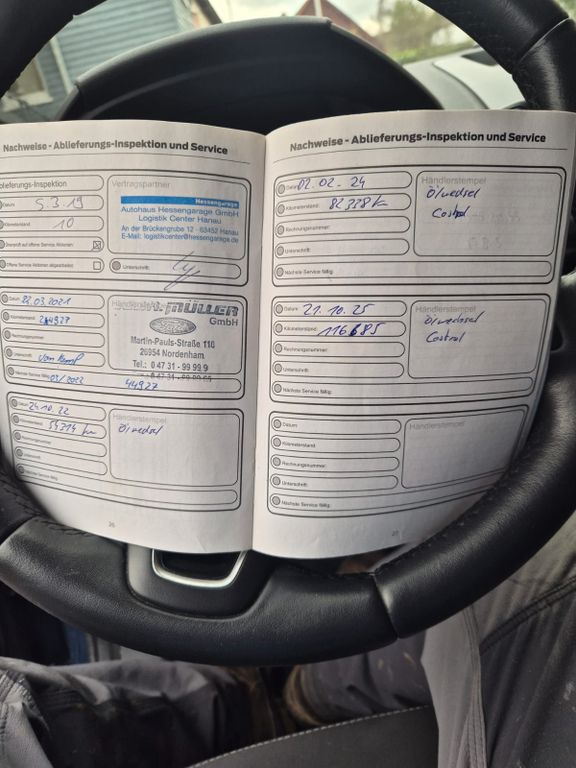 Nachweise - Ablieferungs-Inspektion und Service
blieferungs-Inspektion
Datum 5.3.19
Kilometerstand 10
Überprüft auf offene Service Aktionen:
Offene Service Aktionen abgearbeitet:
Vertragspartner
Hessengarage
Autohaus Hessengarage GmbH
Logistik Center Hanau
An der Brückengrube 12 · 63452 Hanau
E-Mail: logistikcenter@hessengarage.de
Unterschrift:
Datum 22.03.2021
Kilometerstand: 24927
Rechnungsnummer:
Unterschrift:
Nächste Service fällig: 03/2022 44927
Händlerstempel
MÜLLER
GmbH
Martin-Pauls-Straße 110
26954 Nordenham
Tel.: 0 47 31 - 99 99 9
Datum 24.10.22
Kilometerstand: 54314 km
Rechnungsnummer:
Unterschrift:
Nächste Service fällig:
Händlerstempel
Ölwechsel
26
Nachweise - Ablieferungs-Inspektion und Service
Datum 02.02.24
Kilometerstand: 82338 km
Rechnungsnummer:
Unterschrift:
Nächste Service fällig:
Händlerstempel
Ölwechsel
Castrol
Datum 21.10.25
Kilometerstand: 116685
Rechnungsnummer:
Unterschrift:
Nächste Service fällig:
Händlerstempel
Ölwechsel
Castrol
Datum
Kilometerstand
Rechnungsnummer:
Unterschrift:
Nächste Service fällig:
Händlerstempel
27